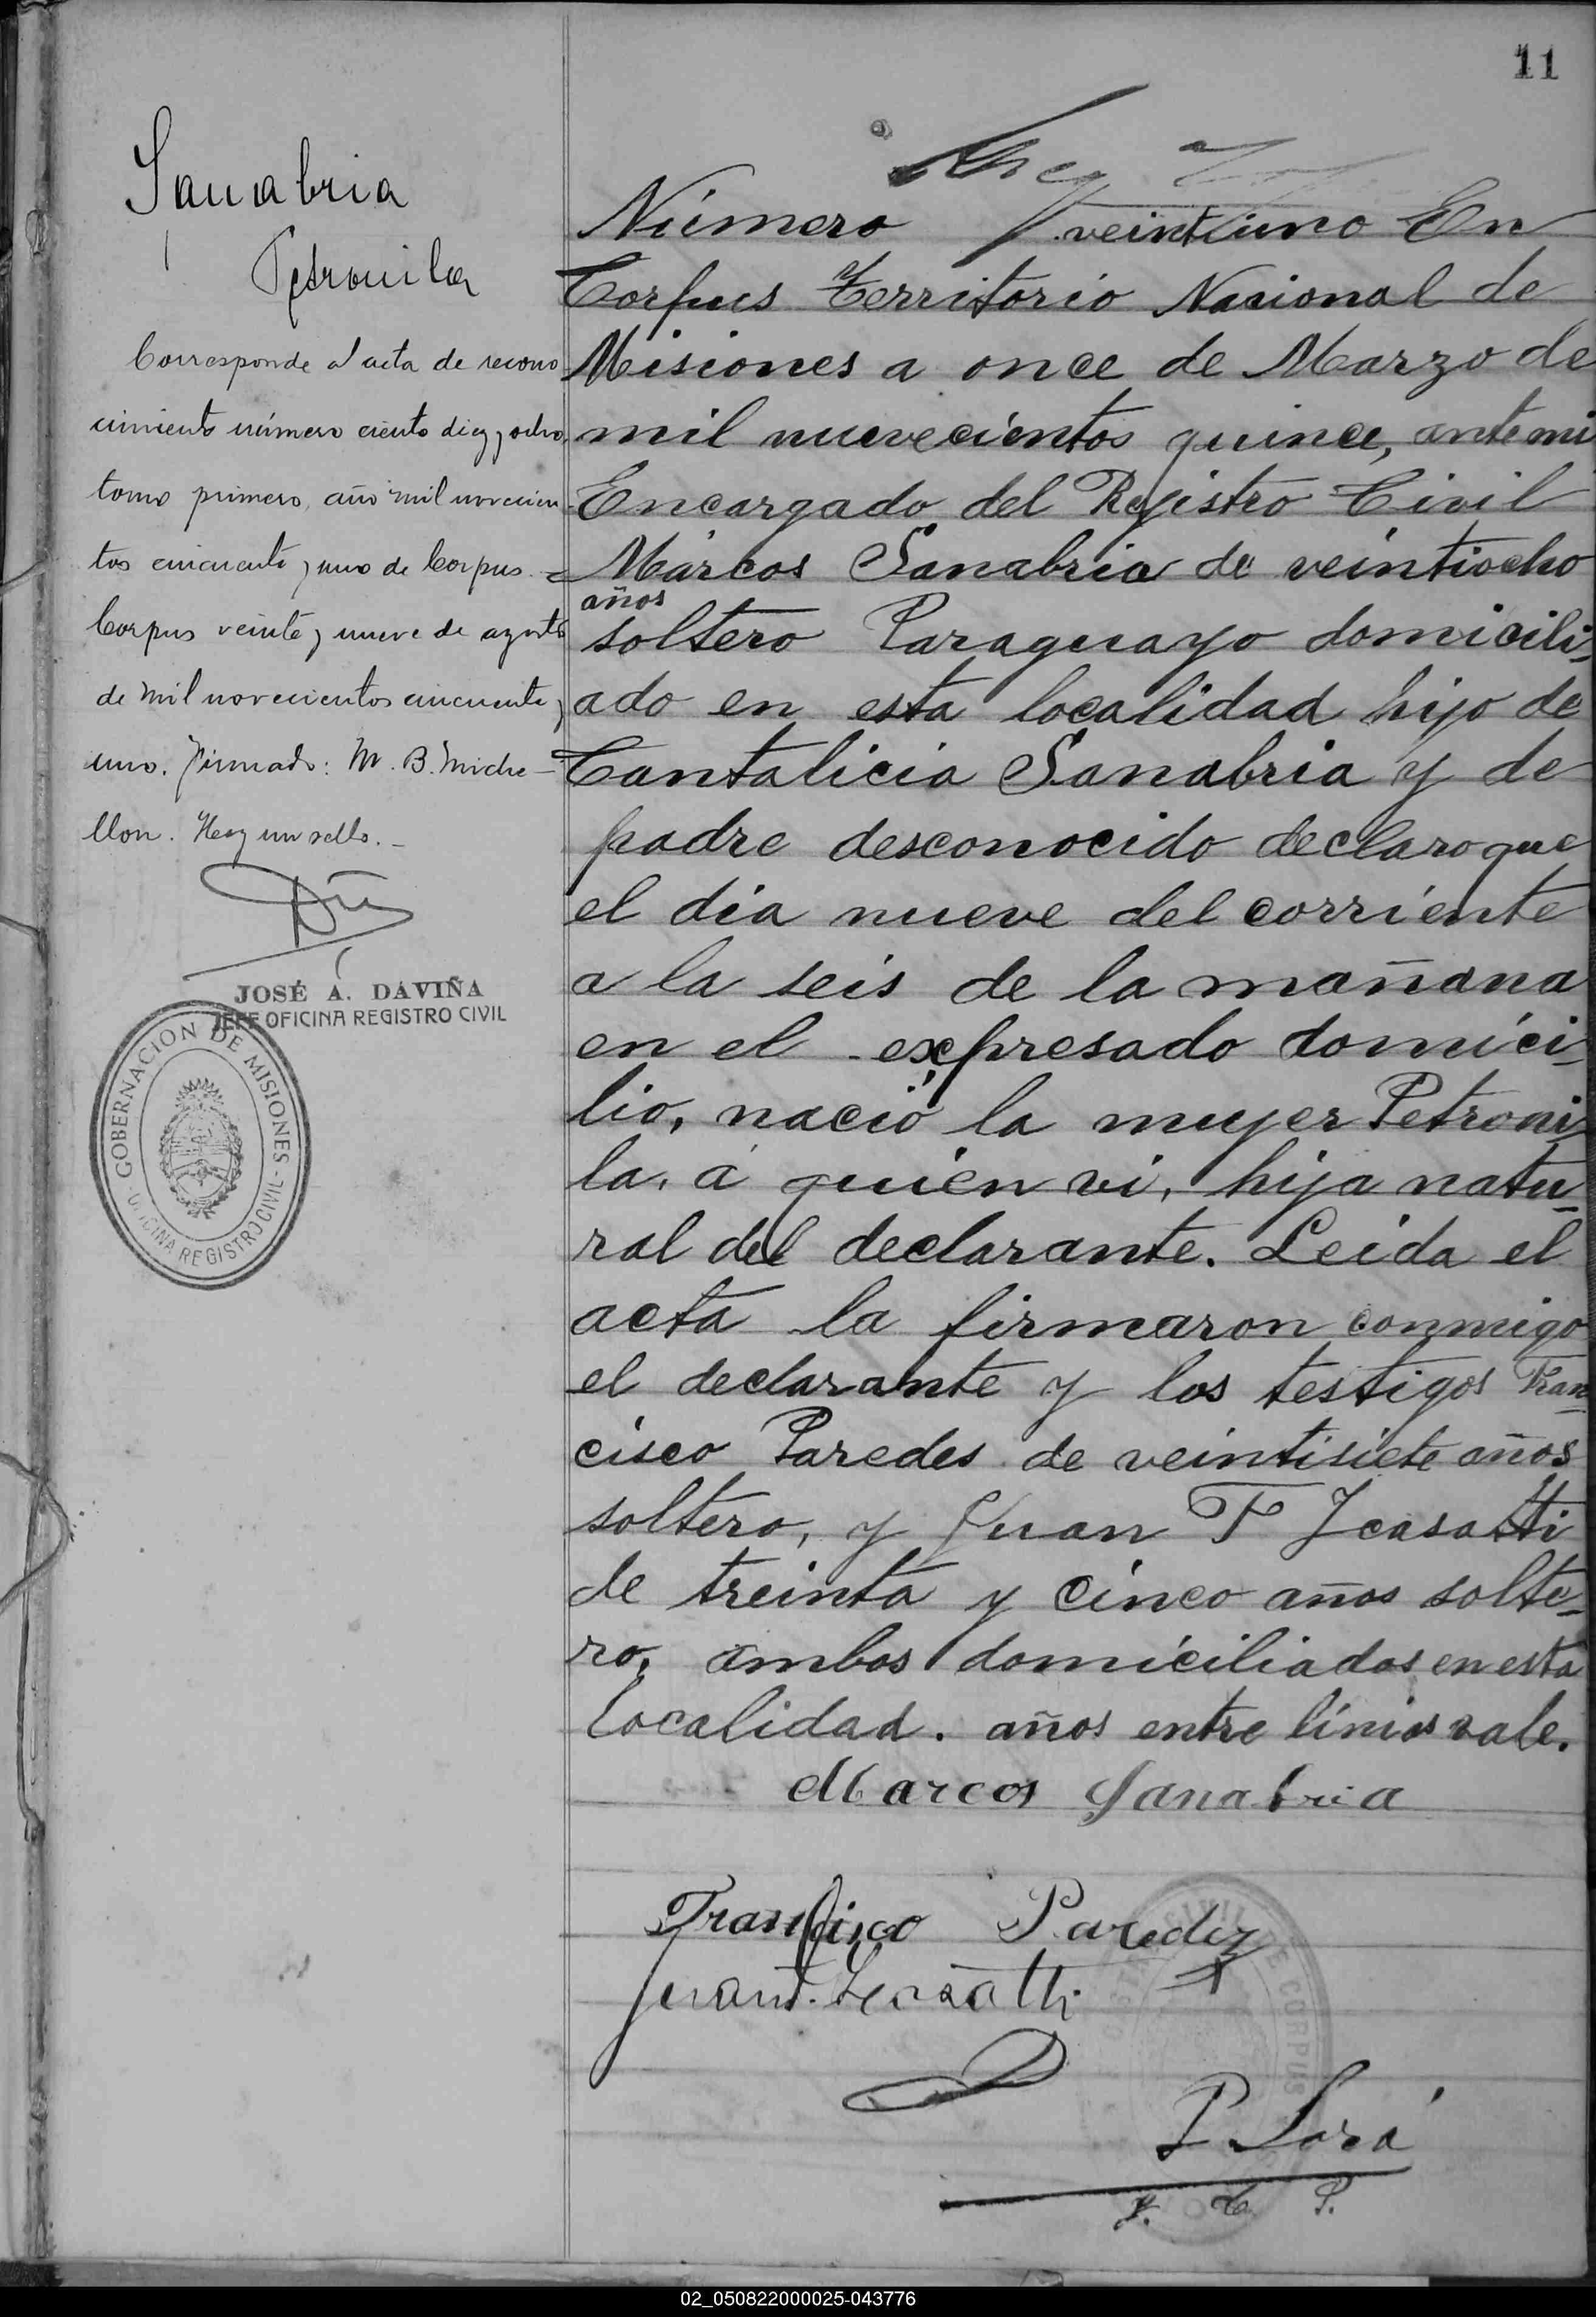 11
Sanabria
Petronila
Corresponde al acta de recono
cimiento número ciento diez y ocho,
tomo primero, año mil novecien
tos cincuenta y uno de Corpus. =
Corpus veinte y nueve de agosto
de mil novecientos cincuenta y
uno. Firmado: M. B. Miche-
llon. Hay un sello. -
JOSÉ A. DAVIÑA
JEFE OFICINA REGISTRO CIVIL
GOBERNACION DE MISIONES -
OFICINA REGISTRO CIVIL -
Número veintiuno En
Corpus Territorio Nacional de
Misiones a once de Marzo de
mil nuevecientos quince, ante mi
Encargado del Registro Civil
Márcos Sanabria de veintiocho
años
soltero Paraguayo domicili-
ado en esta localidad hijo de
Cantalicia Sanabria y de
padre desconocido declaro que
el dia nueve del corriente
a la seis de la mañana
en el expresado domici-
lio, nació la mujer Petroni-
la, á quien vi, hija natu-
ral del declarante. Leida el
acta la firmaron conmigo
el declarante y los testigos Fran-
cisco Paredes de veintisiete años
soltero, y Juan F Icasatti
de treinta y cinco años solte-
ro, ambos domiciliados en esta
localidad. años entre linias vale.
Marcos Sanabria
Francisco Paredez
Juan F. Icasatti
P. Sosa
J. P.
CIVIL DE CORPUS
02_050822000025-043776